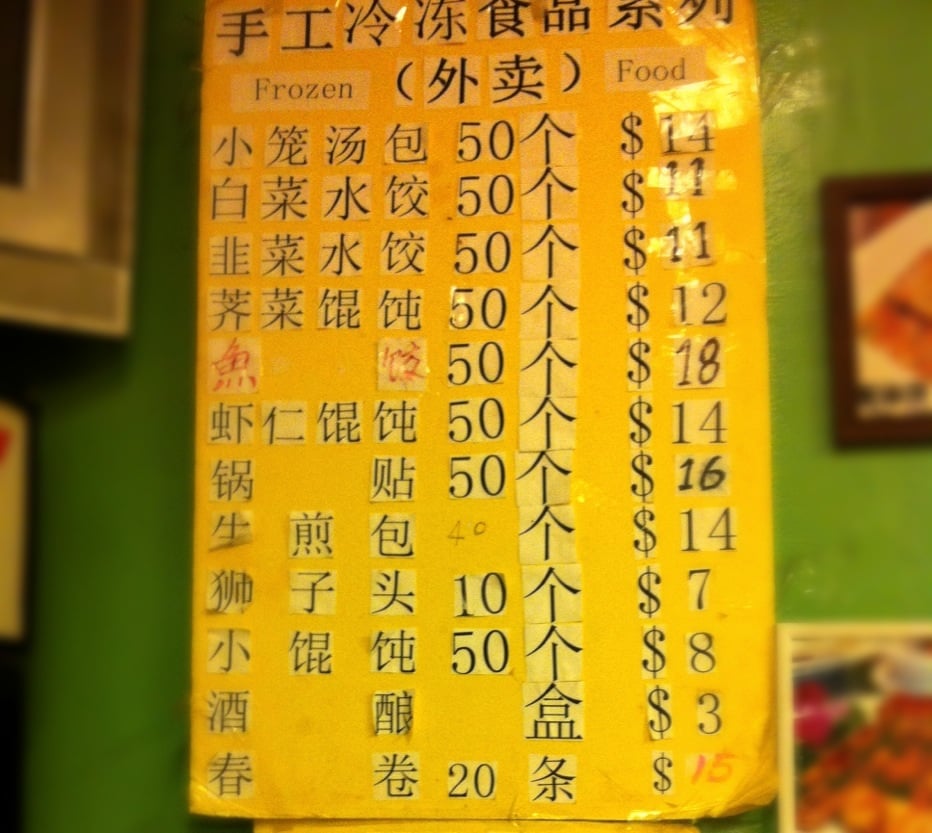 手工冷冻食品系列
Frozen （外卖） Food
小笼汤包 50个 $14
白菜水饺 50个 $11
韭菜水饺 50个 $11
荠菜馄饨 50个 $12
魚饺 50个 $18
虾仁馄饨 50个 $14
锅贴 50个 $16
生煎包 40个 $14
狮子头 10个 $7
小馄饨 50个 $8
酒酿 盒 $3
春卷 20条 $15